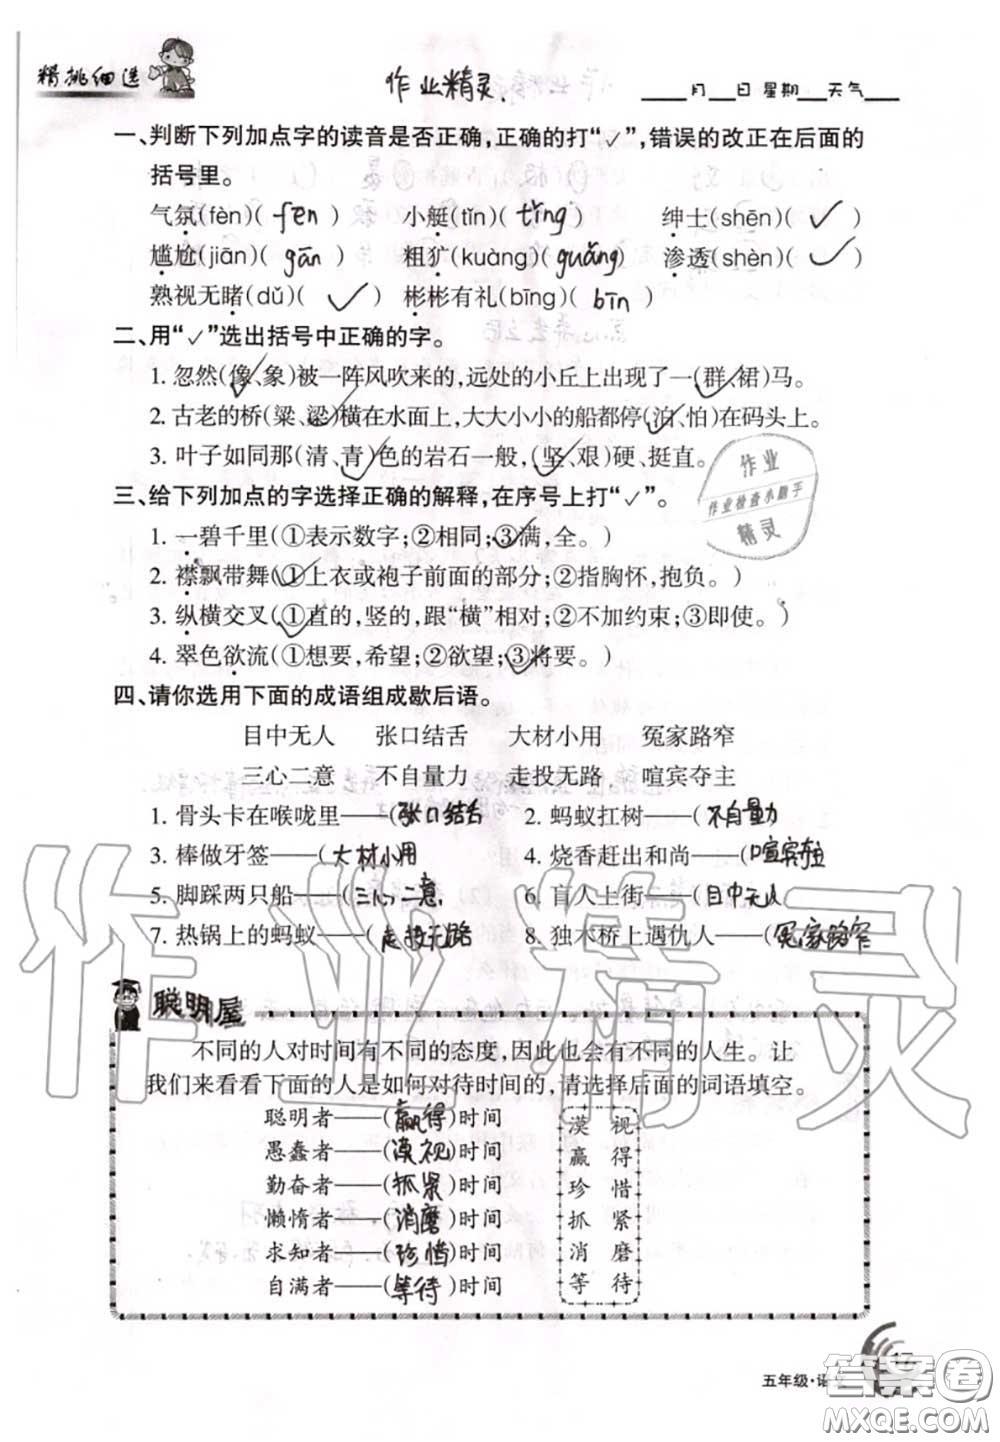 精挑细选
作业精灵
____月___日 星期___天气____
一、判断下列加点字的读音是否正确,正确的打“✓”,错误的改正在后面的
括号里。
气氛(fèn)( fēn ) 小艇(tǐn)( tǐng ) 绅士(shēn)( ✓ )
尴尬(jiān)( gān ) 粗犷(kuàng)( guǎng ) 渗透(shèn)( ✓ )
熟视无睹(dǔ)( ✓ ) 彬彬有礼(bīng)( bīn )
二、用“✓”选出括号中正确的字。
1. 忽然(像、象)被一阵风吹来的,远处的小丘上出现了一(群、裙)马。
2. 古老的桥(粱、梁)横在水面上,大大小小的船都停(泊、怕)在码头上。
3. 叶子如同那(清、青)色的岩石一般,(坚、艰)硬、挺直。
三、给下列加点的字选择正确的解释,在序号上打“✓”。
1. 一碧千里(①表示数字;②相同;③满,全。)
2. 襟飘带舞(①上衣或袍子前面的部分;②指胸怀,抱负。)
3. 纵横交叉(①直的,竖的,跟“横”相对;②不加约束;③即使。)
4. 翠色欲流(①想要,希望;②欲望;③将要。)
四、请你选用下面的成语组成歇后语。
目中无人 张口结舌 大材小用 冤家路窄
三心二意 不自量力 走投无路 喧宾夺主
1. 骨头卡在喉咙里——(张口结舌 2. 蚂蚁扛树——( 不自量力
3. 棒做牙签——( 大材小用 4. 烧香赶出和尚——( 喧宾夺主
5. 脚踩两只船——( 三心二意 6. 盲人上街——( 目中无人
7. 热锅上的蚂蚁——( 走投无路 8. 独木桥上遇仇人——( 冤家路窄
聪明屋
不同的人对时间有不同的态度,因此也会有不同的人生。让
我们来看看下面的人是如何对待时间的,请选择后面的词语填空。
聪明者——(赢得)时间
愚蠢者——(漠视)时间
勤奋者——(抓紧)时间
懒惰者——(消磨)时间
求知者——(珍惜)时间
自满者——(等待)时间
漠 视
赢 得
珍 惜
抓 紧
消 磨
等 待
作业
作业检查小助手
精灵
作业精灵
五年级·语文
17
答案圈
MXQE.COM